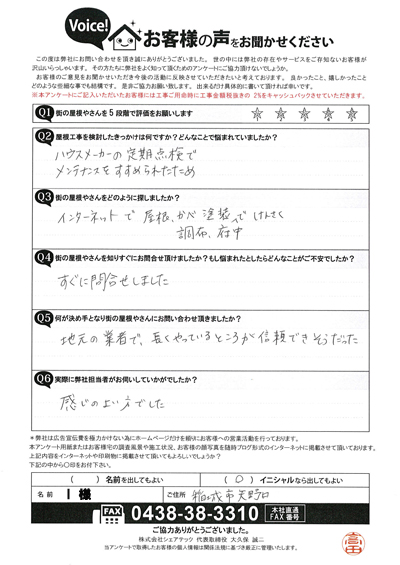 Voice!
お客様の声をお聞かせください
この度は弊社にお問い合わせ頂き誠にありがとうございました。世の中には弊社の存在やサービスをご存知ないお客様が
沢山いらっしゃいます。その方たちに弊社をよく知って頂くためのアンケートにご協力頂けないでしょうか。
お客様のご意見をお聞かせいただき今後の活動に反映させていただきたいと考えております。良かったこと、嬉しかったこと
どのような些細な事でも結構です。是非ご協力お願い致します。出来るだけ具体的に書いて頂ければ幸いです。
※本アンケートにご記入いただいたお客様には工事ご用命時に工事金額税抜きの 2%をキャッシュバックさせていただきます。
Q1 街の屋根やさんを5段階で評価をお願いします ☆ ☆ ☆ ☆ ☆
Q2 屋根工事を検討したきっかけは何ですか?どんなことで悩まれていましたか?
ハウスメーカーの定期点検で
メンテナンスをすすめられたため
Q3 街の屋根やさんをどのように探しましたか?
インターネットで屋根、かべ塗装でけんさく
調布、府中
Q4 街の屋根やさんを知りすぐにお問合せ頂けましたか?もし悩まれたとしたらどんなことがご不安でしたか?
すぐに問合せしました
Q5 何が決め手となり街の屋根やさんにお問い合わせ頂きましたか?
地元の業者で、長くやっているところが信頼できそうだった
Q6 実際に弊社担当者がお伺いしていかがでしたか?
感じのよい方でした
＊弊社は広告宣伝費を極力かけない為にホームページだけを頼りにお客様への営業活動を行っております。
本アンケート用紙またはお客様宅の調査風景や施工状況、お客様の顔写真を随時ブログ形式のインターネットに掲載させて頂いております。
上記内容をインターネットや印刷物に掲載させて頂いてもよろしいでしょうか?
下記の中から〇印をお付下さい。
( ) 名前を出してもよい ( 〇 ) イニシャルなら出してもよい
名前 I 様 ご住所 稲城市矢野口
FAX 0438-38-3310 本社直通 FAX番号
ご協力ありがとうございました。
株式会社シェアテック 代表取締役 大久保 誠二
当アンケートで取得したお客様の個人情報は関係法規に基づき厳正に管理いたします。